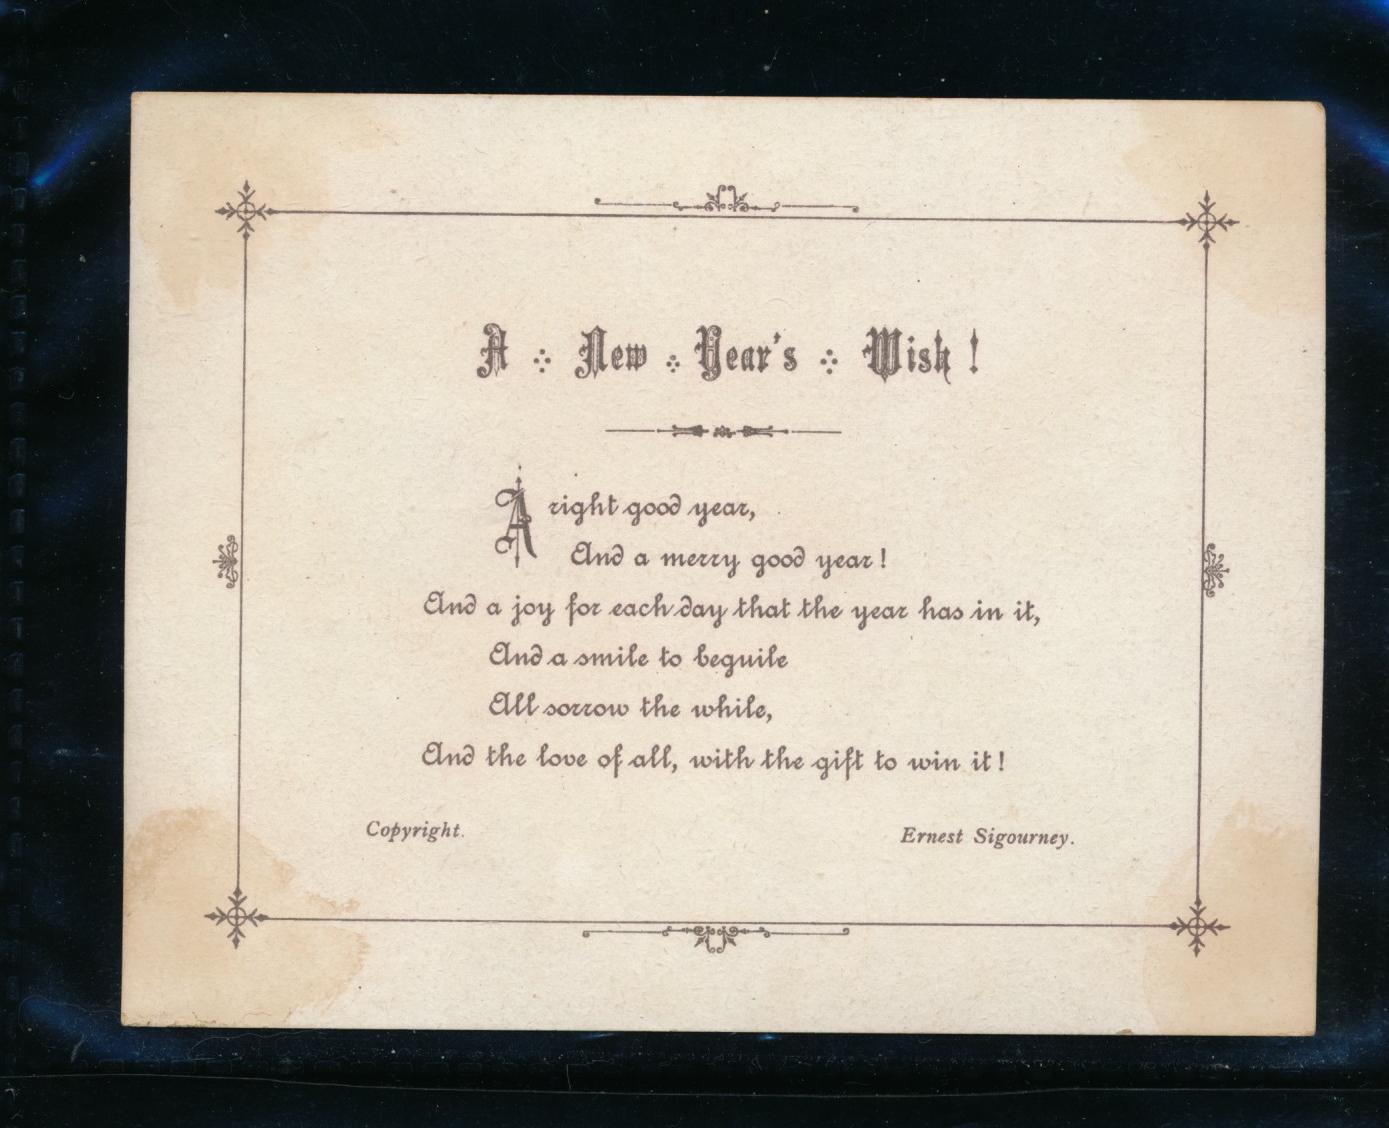 A New Year's Wish!
A right good year,
And a merry good year!
And a joy for each day that the year has in it,
And a smile to beguile
All sorrow the while,
And the love of all, with the gift to win it!
Copyright. Ernest Sigourney.